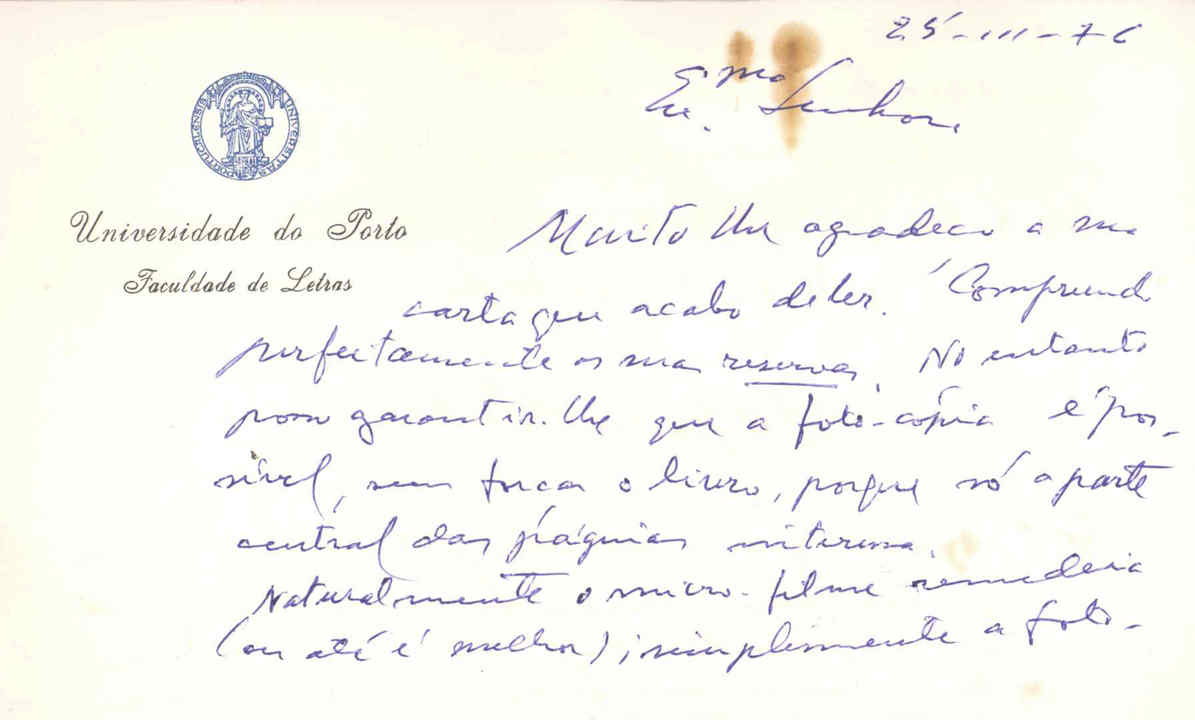 25-III-76
Ex.mo Senhor,
UNIVERSITAS PORTUCALENSIS
Universidade do Porto
Faculdade de Letras
Muito lhe agradeço a sua
carta que acabo de ler. Compreendo
perfeitamente as suas reservas. No entanto
posso garantir-lhe que a foto-cópia é pos-
sível, sem forçar o livro, porque só a parte
central das páginas interessa.
Naturalmente o micro-filme remedeia
(ou até é melhor); simplesmente a foto-